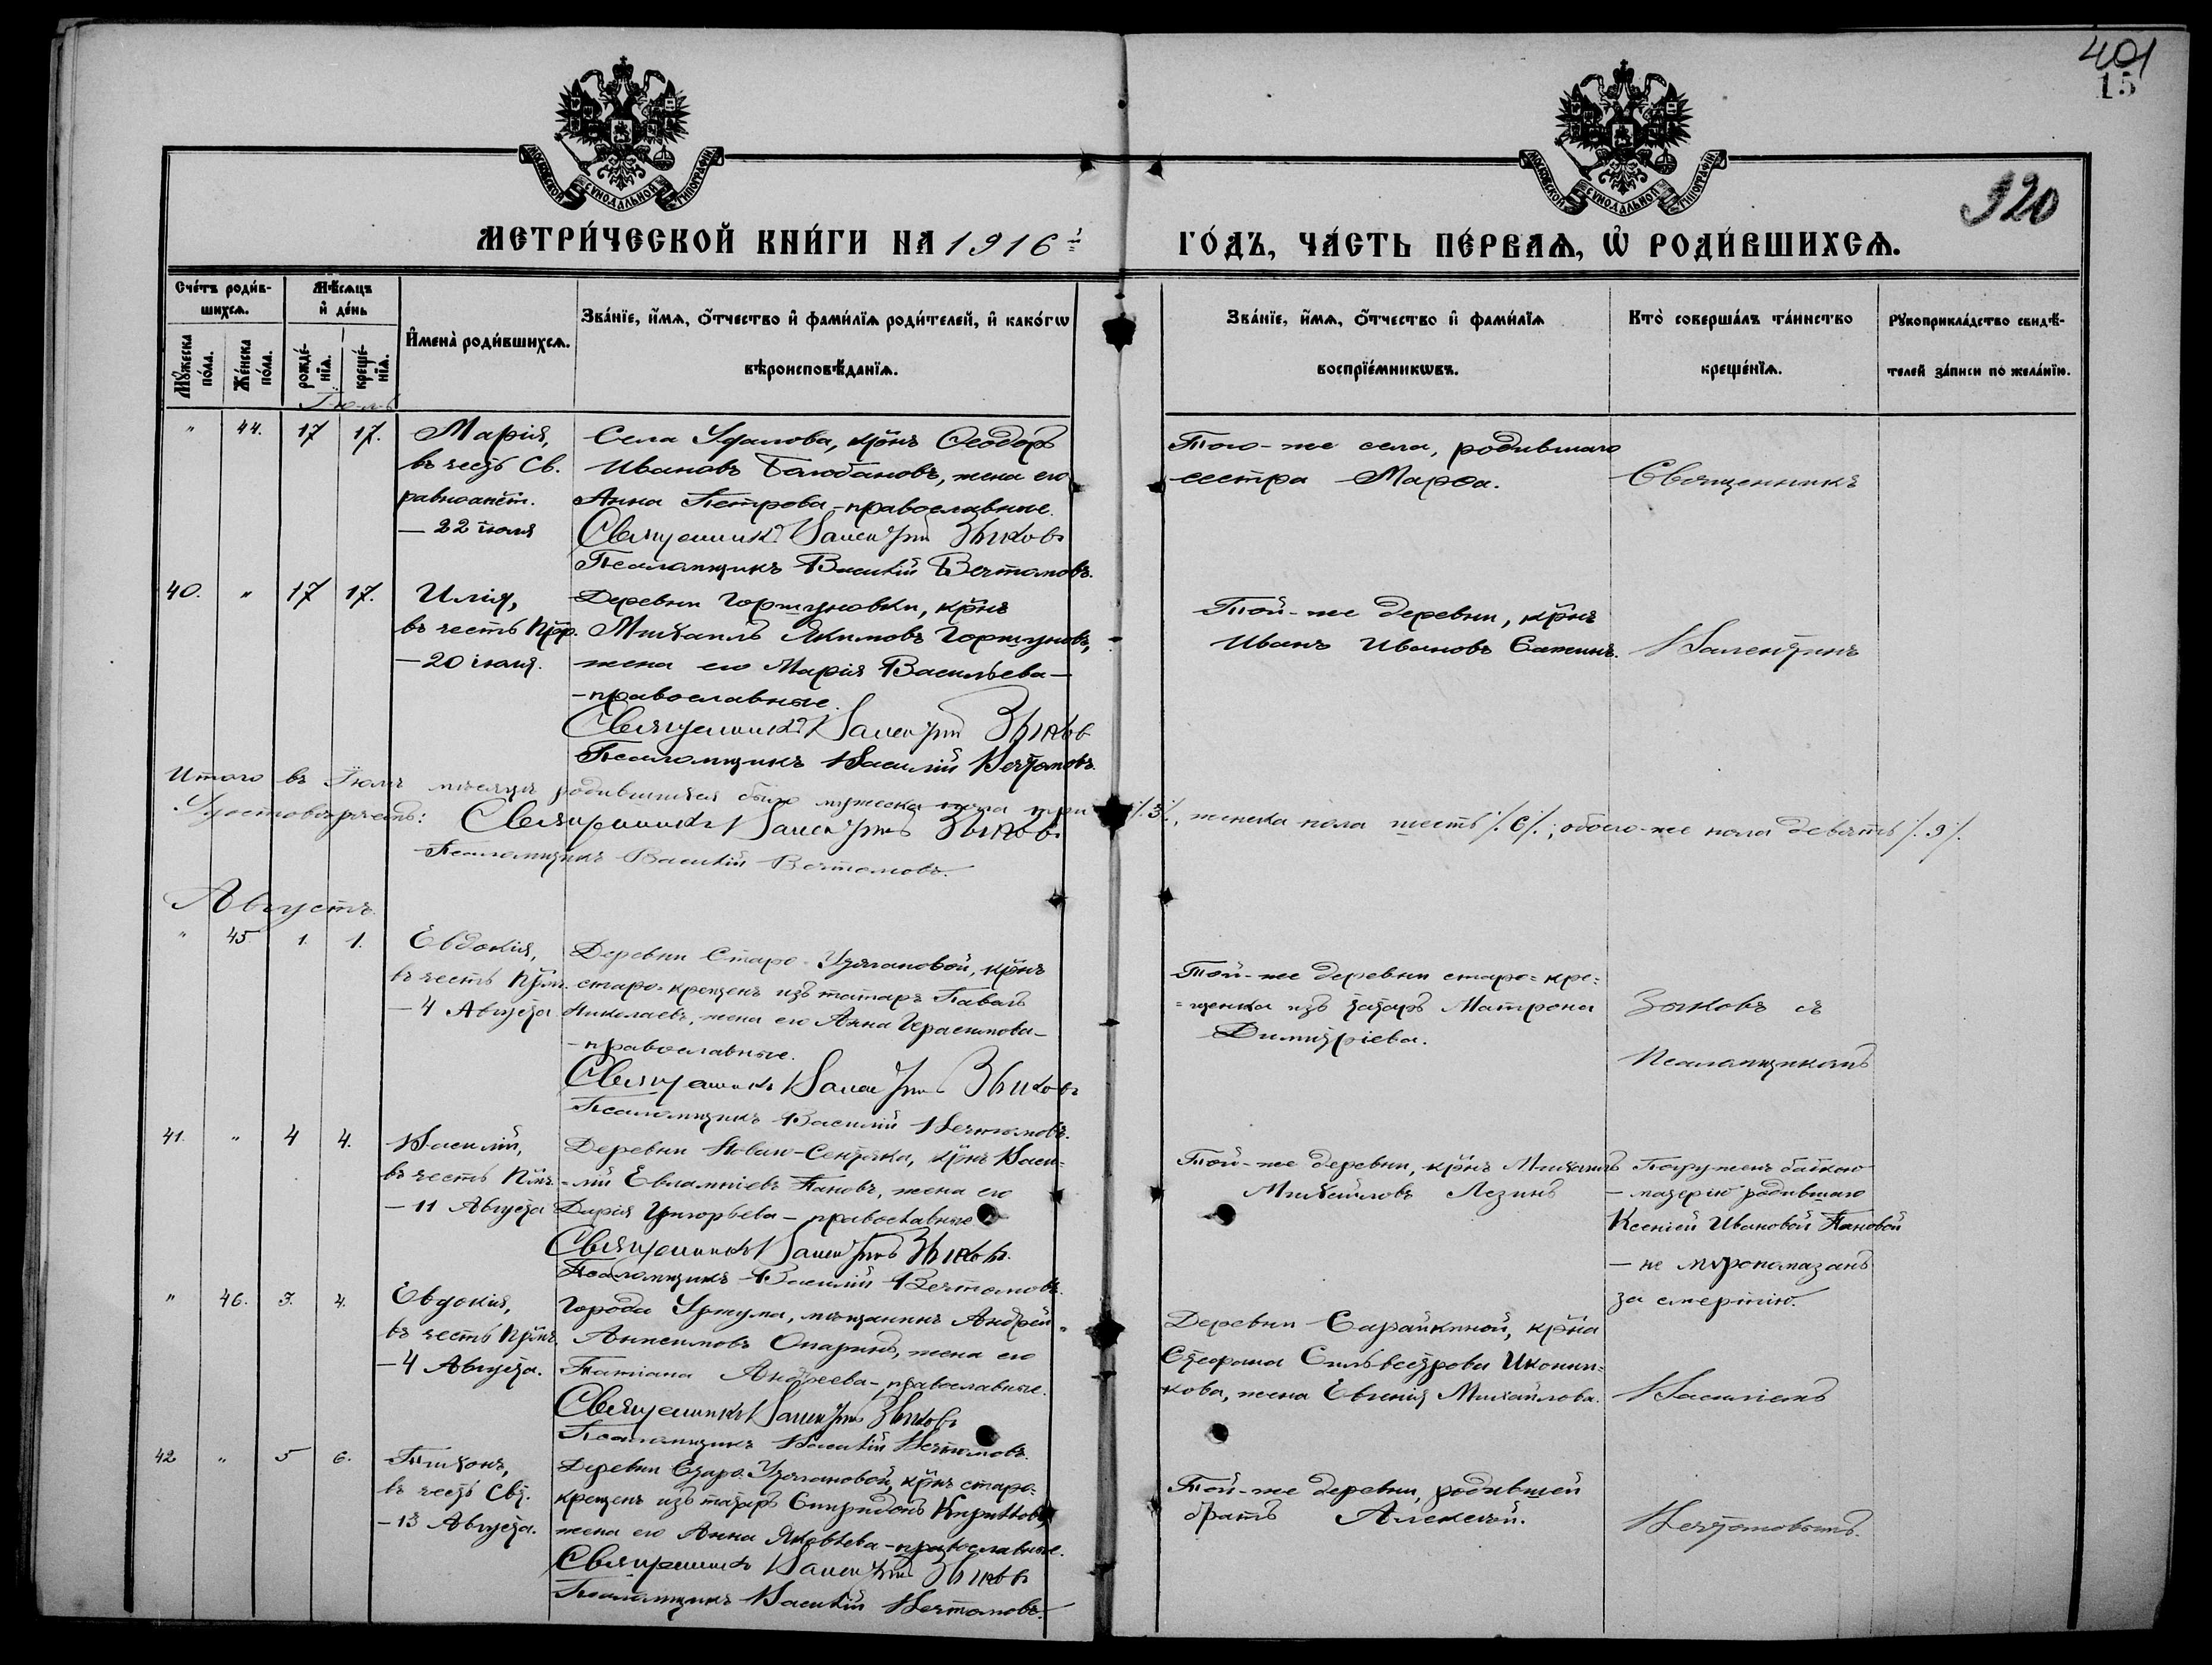 401
15
320
МОСКОВСКОЙ СУНОДАЛЬНОЙ ТИПОГРАФІИ
МОСКОВСКОЙ СУНОДАЛЬНОЙ ТИПОГРАФІИ
МЕТРИ́ЧЕСКОЙ КНИ́ГИ НА 1916 й
ГО́ДЪ, ЧА́СТЬ ПЕ́РВАѦ, Ѡ҆ РОДИ́ВШИХСѦ.
Сче́тъ роди́в-
шихсѧ.
Мѣ́сѧцъ
и҆ де́нь
Мꙋ́жеска по́ла.
Же́нска по́ла.
рожде́-
нїѧ.
креще́-
нїѧ.
И҆мена̀ роди́вшихсѧ.
Зва́нїе, и҆́мѧ, ѻ҆́тчество и҆ фами́лїѧ роди́телей, и҆ како́гѡ
вѣроисповѣ́данїѧ.
Зва́нїе, и҆́мѧ, ѻ҆́тчество и҆ фами́лїѧ
воспрїе́мникѡвъ.
Кто̀ соверша́лъ та́инство
креще́нїѧ.
Рꙋкоприкла́дство свидѣ́-
телей за́писи по жела́нїю.
Іюль
" 44. 17 17.
Марія,
въ честь Св.
равноапст.
— 22 іюля
Села Удалова, крнъ Ѳеодоръ
Ивановъ Балобановъ, жена его
Анна Петрова - православные.
Священникъ Валентинъ Зыковъ
Псаломщикъ Василій Вечтомовъ.
Того-же села, родившаго
сестра Марѳа.
Священникъ
40. " 17 17.
Илія,
въ честь Прр.
— 20 іюля.
Деревни Горшуновки, крнъ
Михаилъ Якимовъ Горшуновъ,
жена его Марія Васильева —
- православные.
Священникъ Валентинъ Зыковъ
Псаломщикъ Василій Вечтомовъ.
Той-же деревни, крнъ
Иванъ Ивановъ Сапинъ.
Валентинъ
Итого въ Іюлѣ мѣсяцѣ родившихся было мужеска пола три /.3/., женска пола шесть /.6/.; обоего-же пола девять /.9/.
Удостовѣряетъ: Священникъ Валентинъ Зыковъ.
Псаломщикъ Василій Вечтомовъ.
Августъ.
" 45 1. 1.
Евдокія,
въ честь Прмч.
— 4 Августа
Деревни Старо-Узялановой, крнъ
старо-крещенъ изъ татаръ Павелъ
Николаевъ, жена его Анна Герасимова —
- православные.
Священникъ Валентинъ Зыковъ
Псаломщикъ Василій Вечтомовъ.
Той-же деревни старо-кре=
=щенка изъ татаръ Матрона
Димитріева.
Зыковъ съ
Псаломщикомъ
41. " 4 4.
Василій,
въ честь Пмч.
— 11 Августа
Деревни Сентяка, крнъ Васи-
-лій Евлампіевъ Пановъ, жена его
Дарія Григорьева - православные
Священникъ Валентинъ Зыковъ.
Псаломщикъ Василій Вечтомовъ.
Той-же деревни, крнъ Михаилъ
Михайловъ Лезинъ
Погруженъ бабкою
— матерію родившаго
Ксеніей Ивановой Пановой
— не мѵропомазанъ
за смертію.
" 46. 3. 4.
Евдокія,
въ честь Прмч.
— 4 Августа.
Города Уржума, мѣщанинъ Андрей
Анисимовъ Опаринъ, жена его
Татіана Андреева - православные.
Священникъ Валентинъ Зыковъ
Псаломщикъ Василій Вечтомовъ.
Деревни Сарайкиной, крна
Стефана Сильвестрова Иконни=
кова, жена Евгенія Михайлова.
Василіемъ
42 " 5 6.
Тихонъ,
въ честь Свт.
— 13 Августа.
Деревни Старо-Узялановой, крнъ старо-
крещенъ изъ татаръ Спиридонъ Кирилловъ,
жена его Анна Яковлева - православные.
Священникъ Валентинъ Зыковъ
Псаломщикъ Василій Вечтомовъ.
Той-же деревни, родившей
братъ Алексѣй.
Вечтомовымъ.